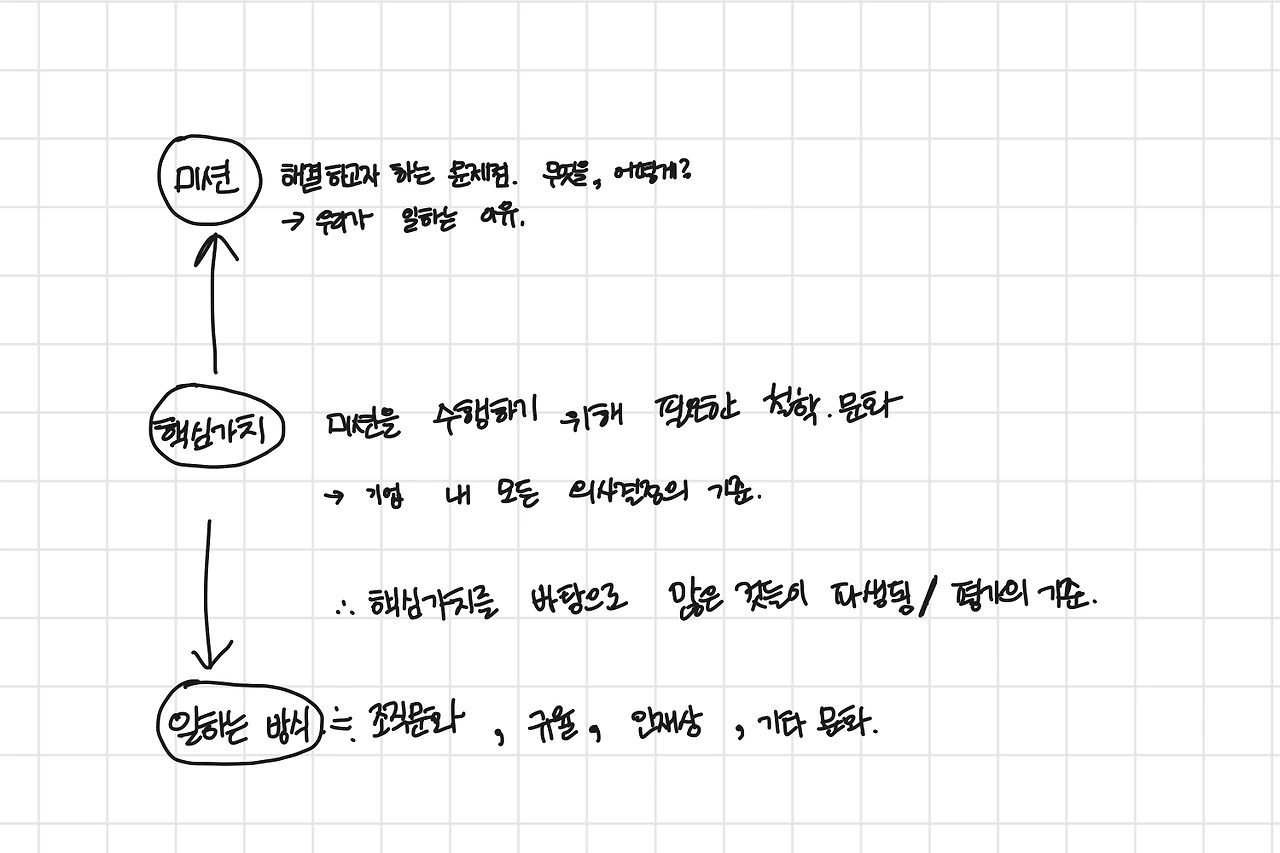 미션
해결하고자 하는 문제점. 무엇을, 어떻게?
→ 우리가 일하는 이유.
핵심가치
미션을 수행하기 위해 필요한 철학.문화
→ 기업 내 모든 의사결정의 기준.
∴ 핵심가치를 바탕으로 많은 것들이 파생됨/ 평가의 기준.
일하는 방식 ≒ 조직문화, 규율, 인재상, 기타 문화.